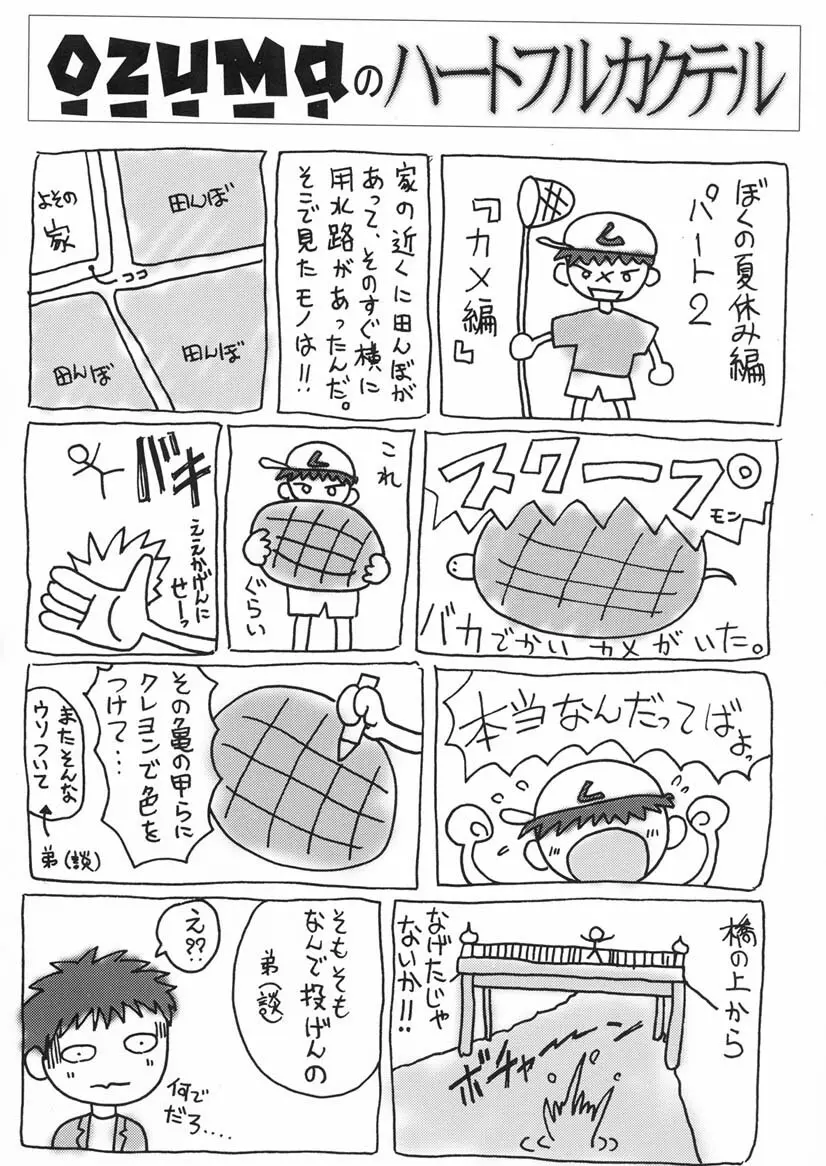 OZUMAのハートフルカクテル
ぼくの夏休み編
パート2
『カメ編』
家の近くに田んぼが
あって、そのすぐ横に
用水路があったんだ。
そこで見たモノは!!
よその
家
田んぼ
ココ
田んぼ
田んぼ
スクープ
モン
バカでかいカメがいた。
これ
ぐらい
バキ
ええかげんに
せーっ
本当なんだってばよっ
その亀の甲らに
クレヨンで色を
つけて・・・
またそんな
ウソついて
弟(談)
橋の上から
なげたじゃ
ないか!!
ボチャーーン
そもそも
なんで投げんの
弟(談)
え??
何で
だろ....